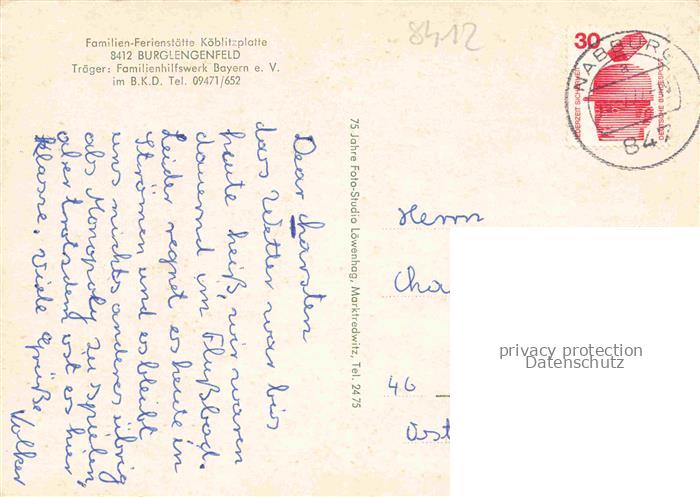 Familien-Ferienstätte Köblitzplatte
8412 BURGLENGENFELD
Träger: Familienhilfswerk Bayern e. V.
im B.K.D. Tel. 09471/652
8412
30
JEDERZEIT SICHERHEIT
DEUTSCHE BUNDESPOST
NABBURG
a
84
Dear Charsten
das Wetter war bis
heute heiß, wir waren
dauernd im Flußbad.
Leider regnet es heute in
Strömen und es bleibt
uns nichts anderes übrig
als Monopoly zu spielen,
aber trotzdem ist es hier
klasse. Viele Grüße
Volker
75 Jahre Foto-Studio Löwenhag, Marktredwitz, Tel. 2475
Herrn
Cha
46
privacy protection
Datenschutz